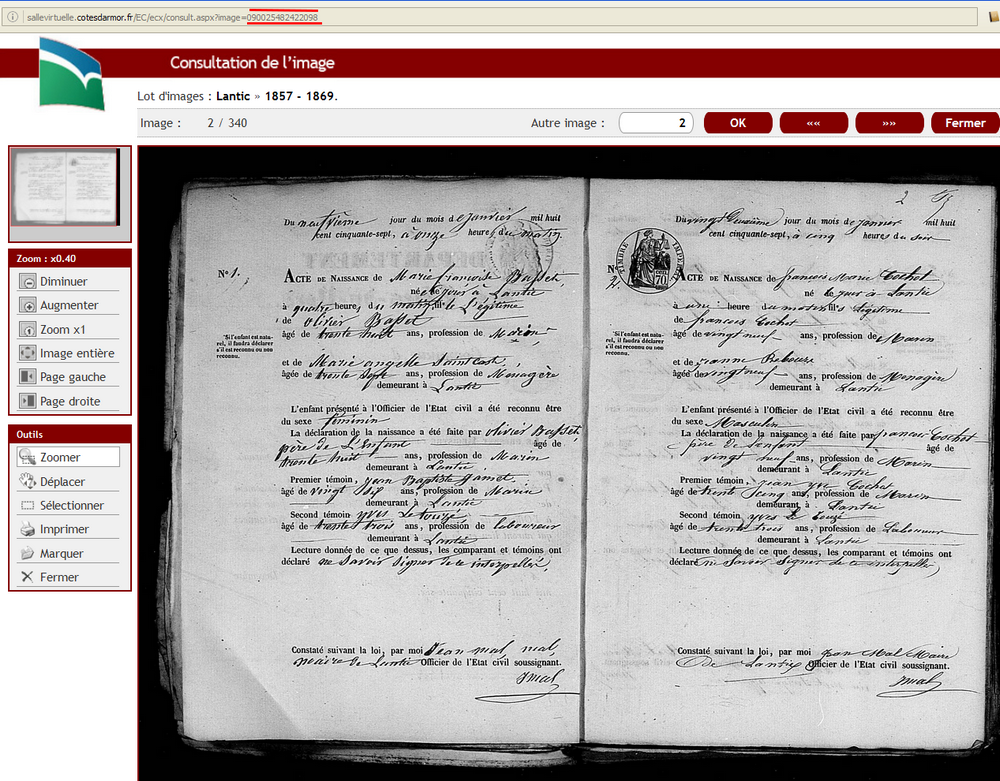 sallevirtuelle.cotesdarmor.fr/EC/ecx/consult.aspx?image=090025482422098
Consultation de l'image
Lot d'images : Lantic » 1857 - 1869.
Image : 2 / 340
Autre image : 2 OK «« »» Fermer
Zoom : x0.40
Diminuer
Augmenter
Zoom x1
Image entière
Page gauche
Page droite
Outils
Zoomer
Déplacer
Sélectionner
Imprimer
Marquer
Fermer
Du neuvième jour du mois de janvier mil huit
cent cinquante-sept, à onze heures du matin.
N° 1.
ACTE DE NAISSANCE de Marie françoise Basset,
né ce jour à Lantic
à quatre heure, du matin, fil le Légitime
de olivier Basset
âgé de trente huit ans, profession de Marin
*Si l'enfant est naturel, il faudra déclarer s'il est reconnu ou non reconnu.
et de Marie
âgée de trente sept ans, profession de Menagère
demeurant à Lantic
L'enfant présenté à l'Officier de l'Etat civil a été reconnu être
du sexe féminin
La déclaration de la naissance a été faite par olivier Basset,
père de l'Enfant âgé de
trente huit ans, profession de Marin
demeurant à Lantic.
Premier témoin, jean Baptiste
âgé de vingt ans, profession de Marin
demeurant à Lantic
Second témoin yves
âgé de trente trois ans, profession de laboureur
demeurant à Lantic
Lecture donnée de ce que dessus, les comparant et témoins ont
déclaré ne Savoir Signer de ce interpellé,
Constaté suivant la loi, par moi Jean mal
maire de Lantic Officier de l'Etat civil soussignant.
jmal
2
Du vingt deuxième jour du mois de janvier mil huit
cent cinquante-sept, à cinq heures du soir
TIMBRE IMPÉRIAL
70
N° 2.
ACTE DE NAISSANCE de francois Marie Cochet
né ce jour à Lantic
à une heure du matin fils légitime
de francois Cochet
âgé de vingt neuf ans, profession de Marin
*Si l'enfant est naturel, il faudra déclarer s'il est reconnu ou non reconnu.
et de
âgée de vingt neuf ans, profession de Menagère
demeurant à Lantic
L'enfant présenté à l'Officier de l'Etat civil a été reconnu être
du sexe Masculin
La déclaration de la naissance a été faite par francois Cochet
père de l'enfant âgé de
vingt neuf ans, profession de Marin
demeurant à Lantic
Premier témoin, jean yve Cochet
âgé de trente cinq ans, profession de Marin
demeurant à Lantic
Second témoin yves
âgé de trente trois ans, profession de Laboureur
demeurant à Lantic
Lecture donnée de ce que dessus, les comparant et témoins ont
déclaré ne Savoir Signer de ce interpellé,
Constaté suivant la loi, par moi jean Mal Maire
De Lantic Officier de l'Etat civil soussignant.
jmal